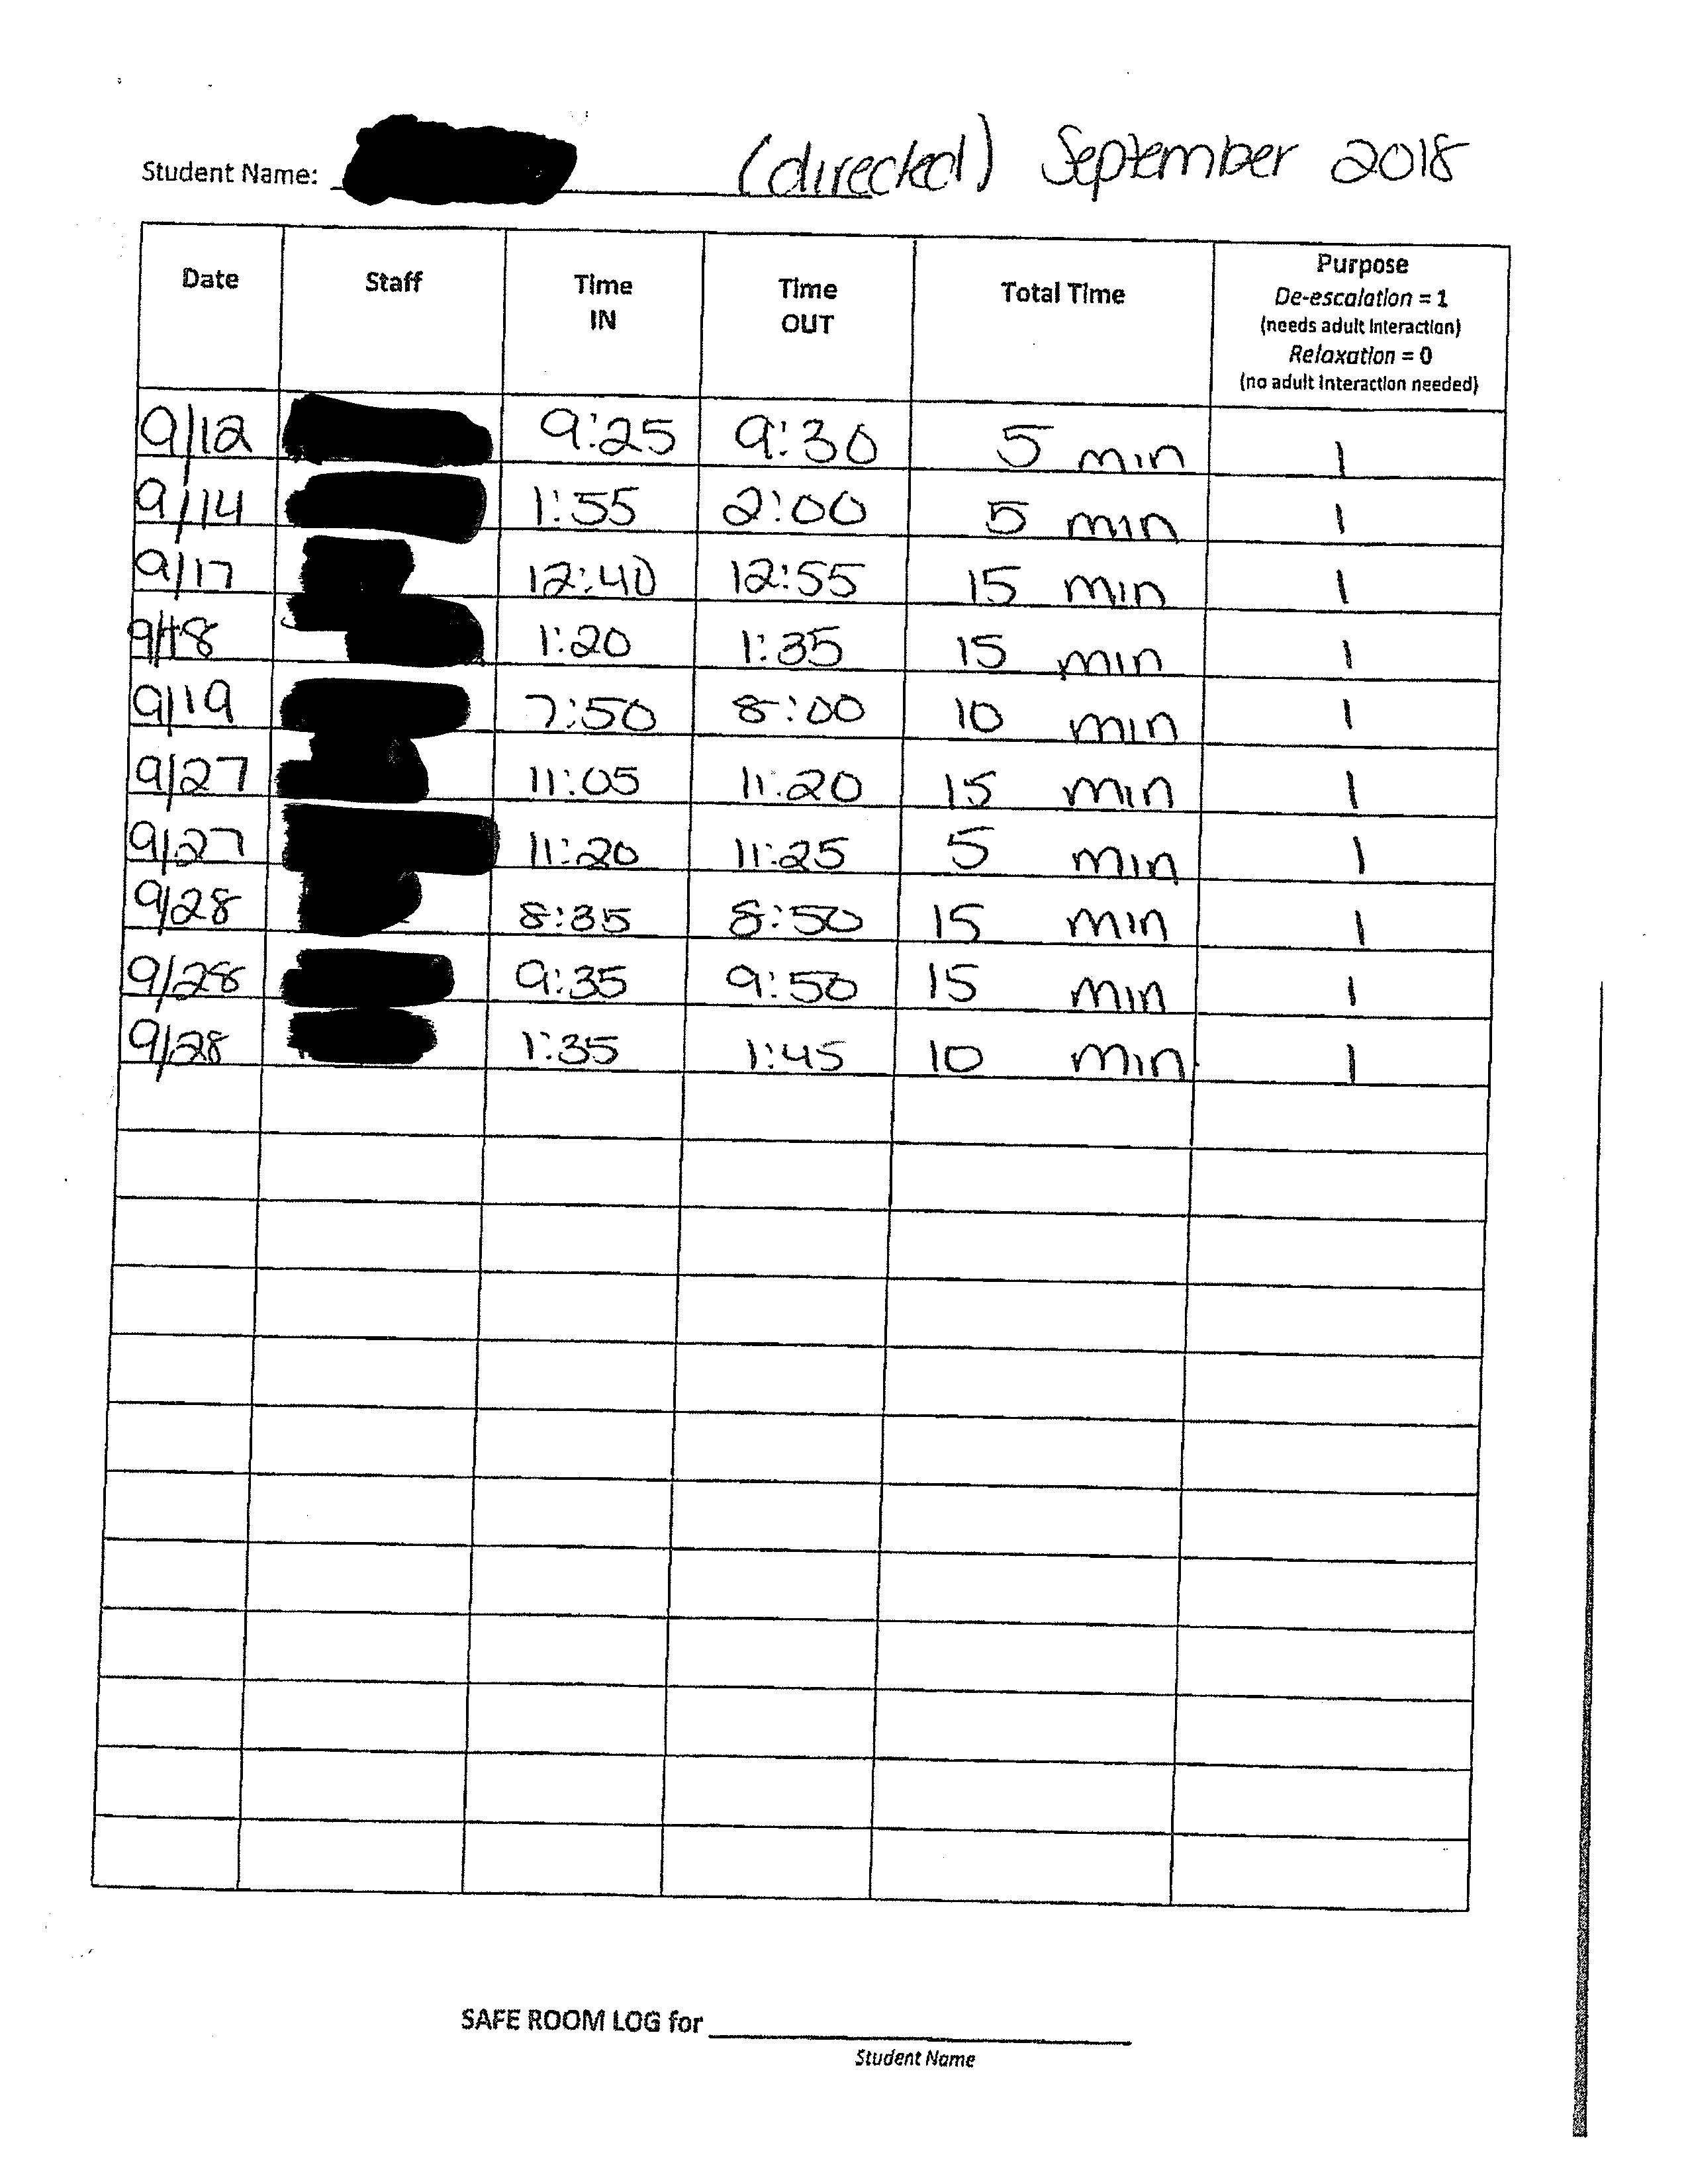 Student Name: (directed) September 2018
Date Staff Time IN Time OUT Total Time Purpose
De-escalation = 1
(needs adult interaction)
Relaxation = 0
(no adult interaction needed)
9/12 9:25 9:30 5 min 1
9/14 1:55 2:00 5 min 1
9/17 12:40 12:55 15 min 1
9/18 1:20 1:35 15 min 1
9/19 7:50 8:00 10 min 1
9/27 11:05 11:20 15 min 1
9/27 11:20 11:25 5 min 1
9/28 8:35 8:50 15 min 1
9/28 9:35 9:50 15 min 1
9/28 1:35 1:45 10 min 1
SAFE ROOM LOG for
Student Name